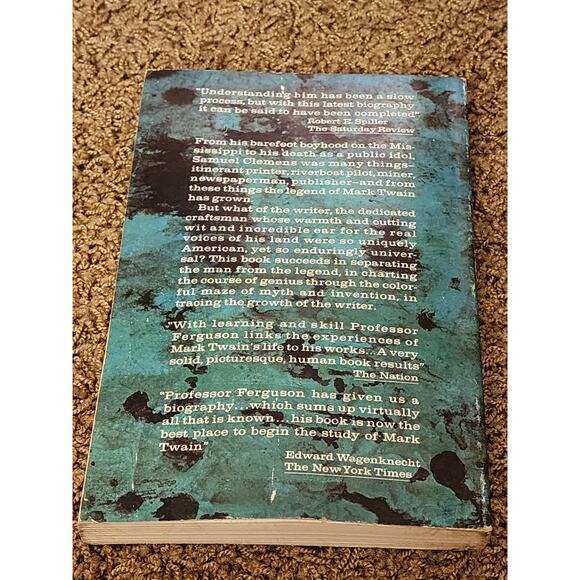 "Understanding him has been a slow
process, but with this latest biography
it can be said to have been completed"
Robert E. Spiller
The Saturday Review
From his barefoot boyhood on the Mis-
sissippi to his death as a public idol,
Samuel Clemens was many things—
itinerant printer, riverboat pilot, miner,
newspaperman, publisher—and from
these things the legend of Mark Twain
has grown.
But what of the writer, the dedicated
craftsman whose warmth and cutting
wit and incredible ear for the real
voices of his land were so uniquely
American, yet so enduringly univer-
sal? This book succeeds in separating
the man from the legend, in charting
the course of genius through the color-
ful maze of myth and invention, in
tracing the growth of the writer.
"With learning and skill Professor
Ferguson links the experiences of
Mark Twain's life to his works...A very
solid, picturesque, human book results"
The Nation
"Professor Ferguson has given us a
biography...which sums up virtually
all that is known...his book is now the
best place to begin the study of Mark
Twain"
Edward Wagenknecht
The New York Times